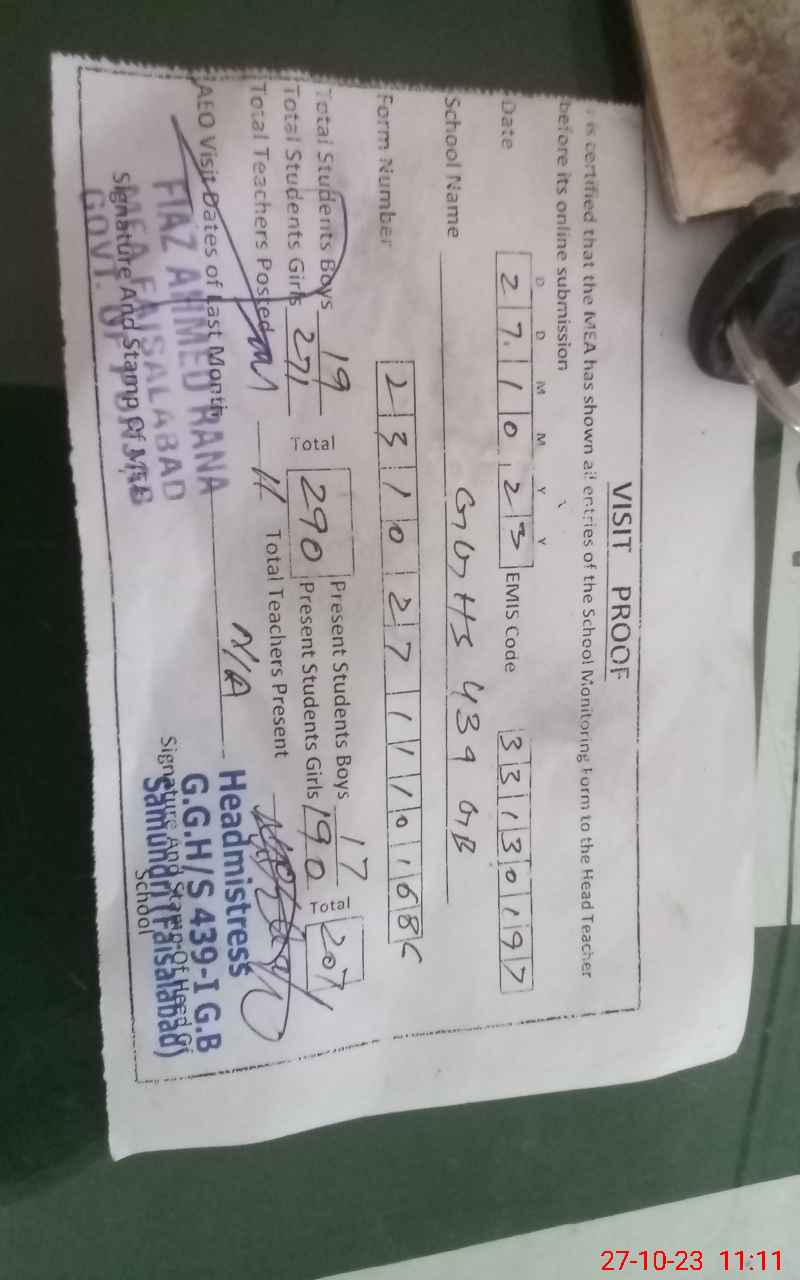 VISIT PROOF
is certified that the MEA has shown all entries of the School Monitoring Form to the Head Teacher
before its online submission
D D M M Y Y
Date 27.10.23 EMIS Code 33130197
School Name GGHS 439 GB
Form Number 2310271110168
Total Students Boys 19 Present Students Boys 17
Total Students Girls 271 Total 290 Present Students Girls 190 Total 207
Total Teachers Posted 11 Total Teachers Present
AEO Visit Dates of Last Month N/A
FIAZ AHMED RANA
MEA FAISALABAD
GOVT. OF PUNJAB
Signature And Stamp Of MEA
Headmistress
G.G.H/S 439-I G.B
Samundri (Faisalabad)
Signature And Stamp Of Head Of
School
27-10-23 11:11